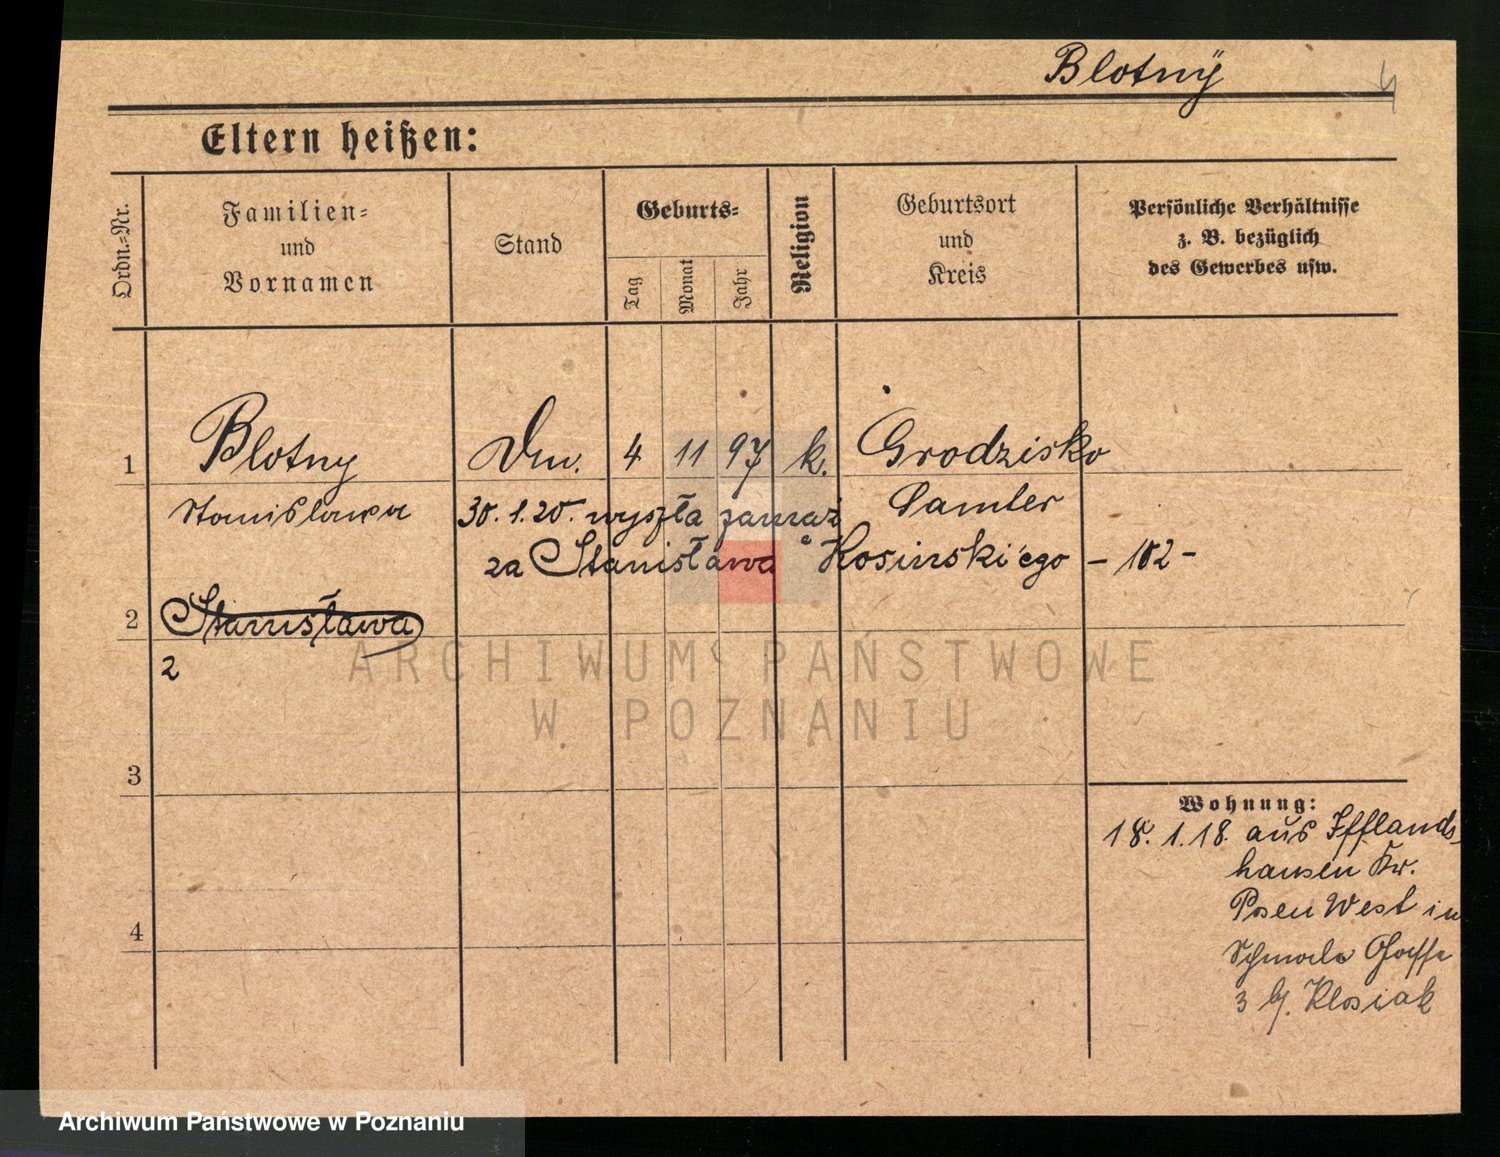 Blotnÿ
4
Eltern heißen:
Ordn.=Nr.
Familien=
und
Vornamen
Stand
Geburts=
Tag
Monat
Jahr
Religion
Geburtsort
und
Kreis
Persönliche Verhältnisse
z. B. bezüglich
des Gewerbes usw.
1 Blotny 4 11 97 k. Grodzisko
Stanislawa 30.1.20. wyszła zamąż Samter
za Stanisława Kosinski'ego – 182 –
2 Stanisława
2
3
4
Wohnung:
18.1.18. aus Ifflands-
hausen Kr.
Posen West in
Schmale Gasse
3 b/. Klosiak
ARCHIWUM PAŃSTWOWE
W POZNANIU
Archiwum Państwowe w Poznaniu